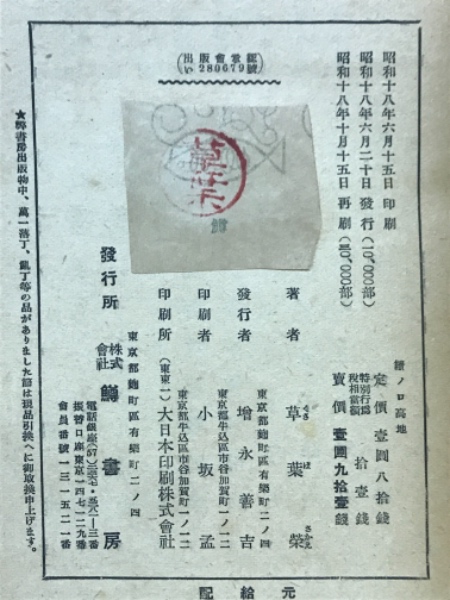 (出版會承認い280679號)
昭和十八年六月十五日 印刷
昭和十八年六月二十日 發行(一〇、〇〇〇部)
昭和十八年十月十五日 再刷
ノロ高地
定價 壹圓八拾錢
特別行爲税相當額 拾壹錢
賣價 壹圓九拾壹錢
著者 草葉榮
東京都麴町區有樂町二ノ四
發行者 增永善吉
東京都牛込區市谷加賀町一ノ一二
印刷者 小坂孟
東京都牛込區市谷加賀町一ノ一二
印刷所 (東東一)大日本印刷株式會社
東京都麴町區有樂町二ノ四
發行所 株式會社 鱒書房
電話銀座(57)
振替口座東京一四七一二九番
會員番號一三一五二一番
★弊書房出版物中、萬一落丁、亂丁等の品がありました節は現品引換へに御取換申上げます。
配給元